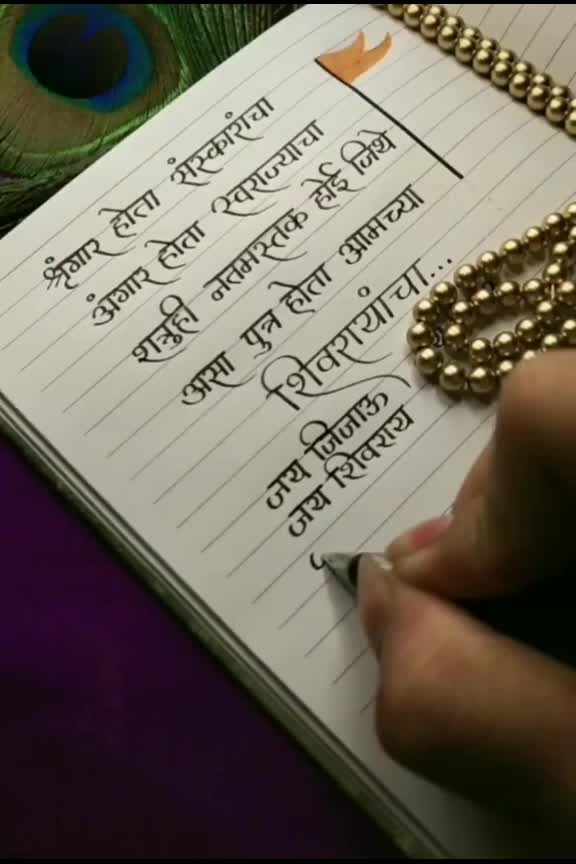 श्रृंगार होता संस्कारांचा
अंगार होता स्वराज्याचा
शत्रुही नतमस्तक होई जिथे
असा पुत्र होता आमच्या
शिवरायांचा...
जय जिजाऊ
जय शिवराय